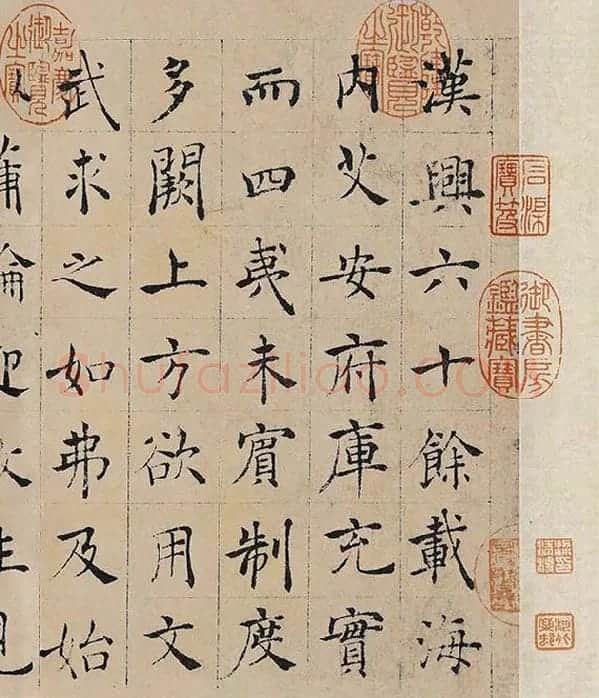 漢興六十餘載海
内艾安府庫充實
而四夷未賓制度
多闕上方欲用文
武求之如弗及始
以蒲輪迎枚生見
乾隆御覽之寶
嘉慶御覽之寶
石渠寶笈
御書房鑑藏寶
shufaziliao.com